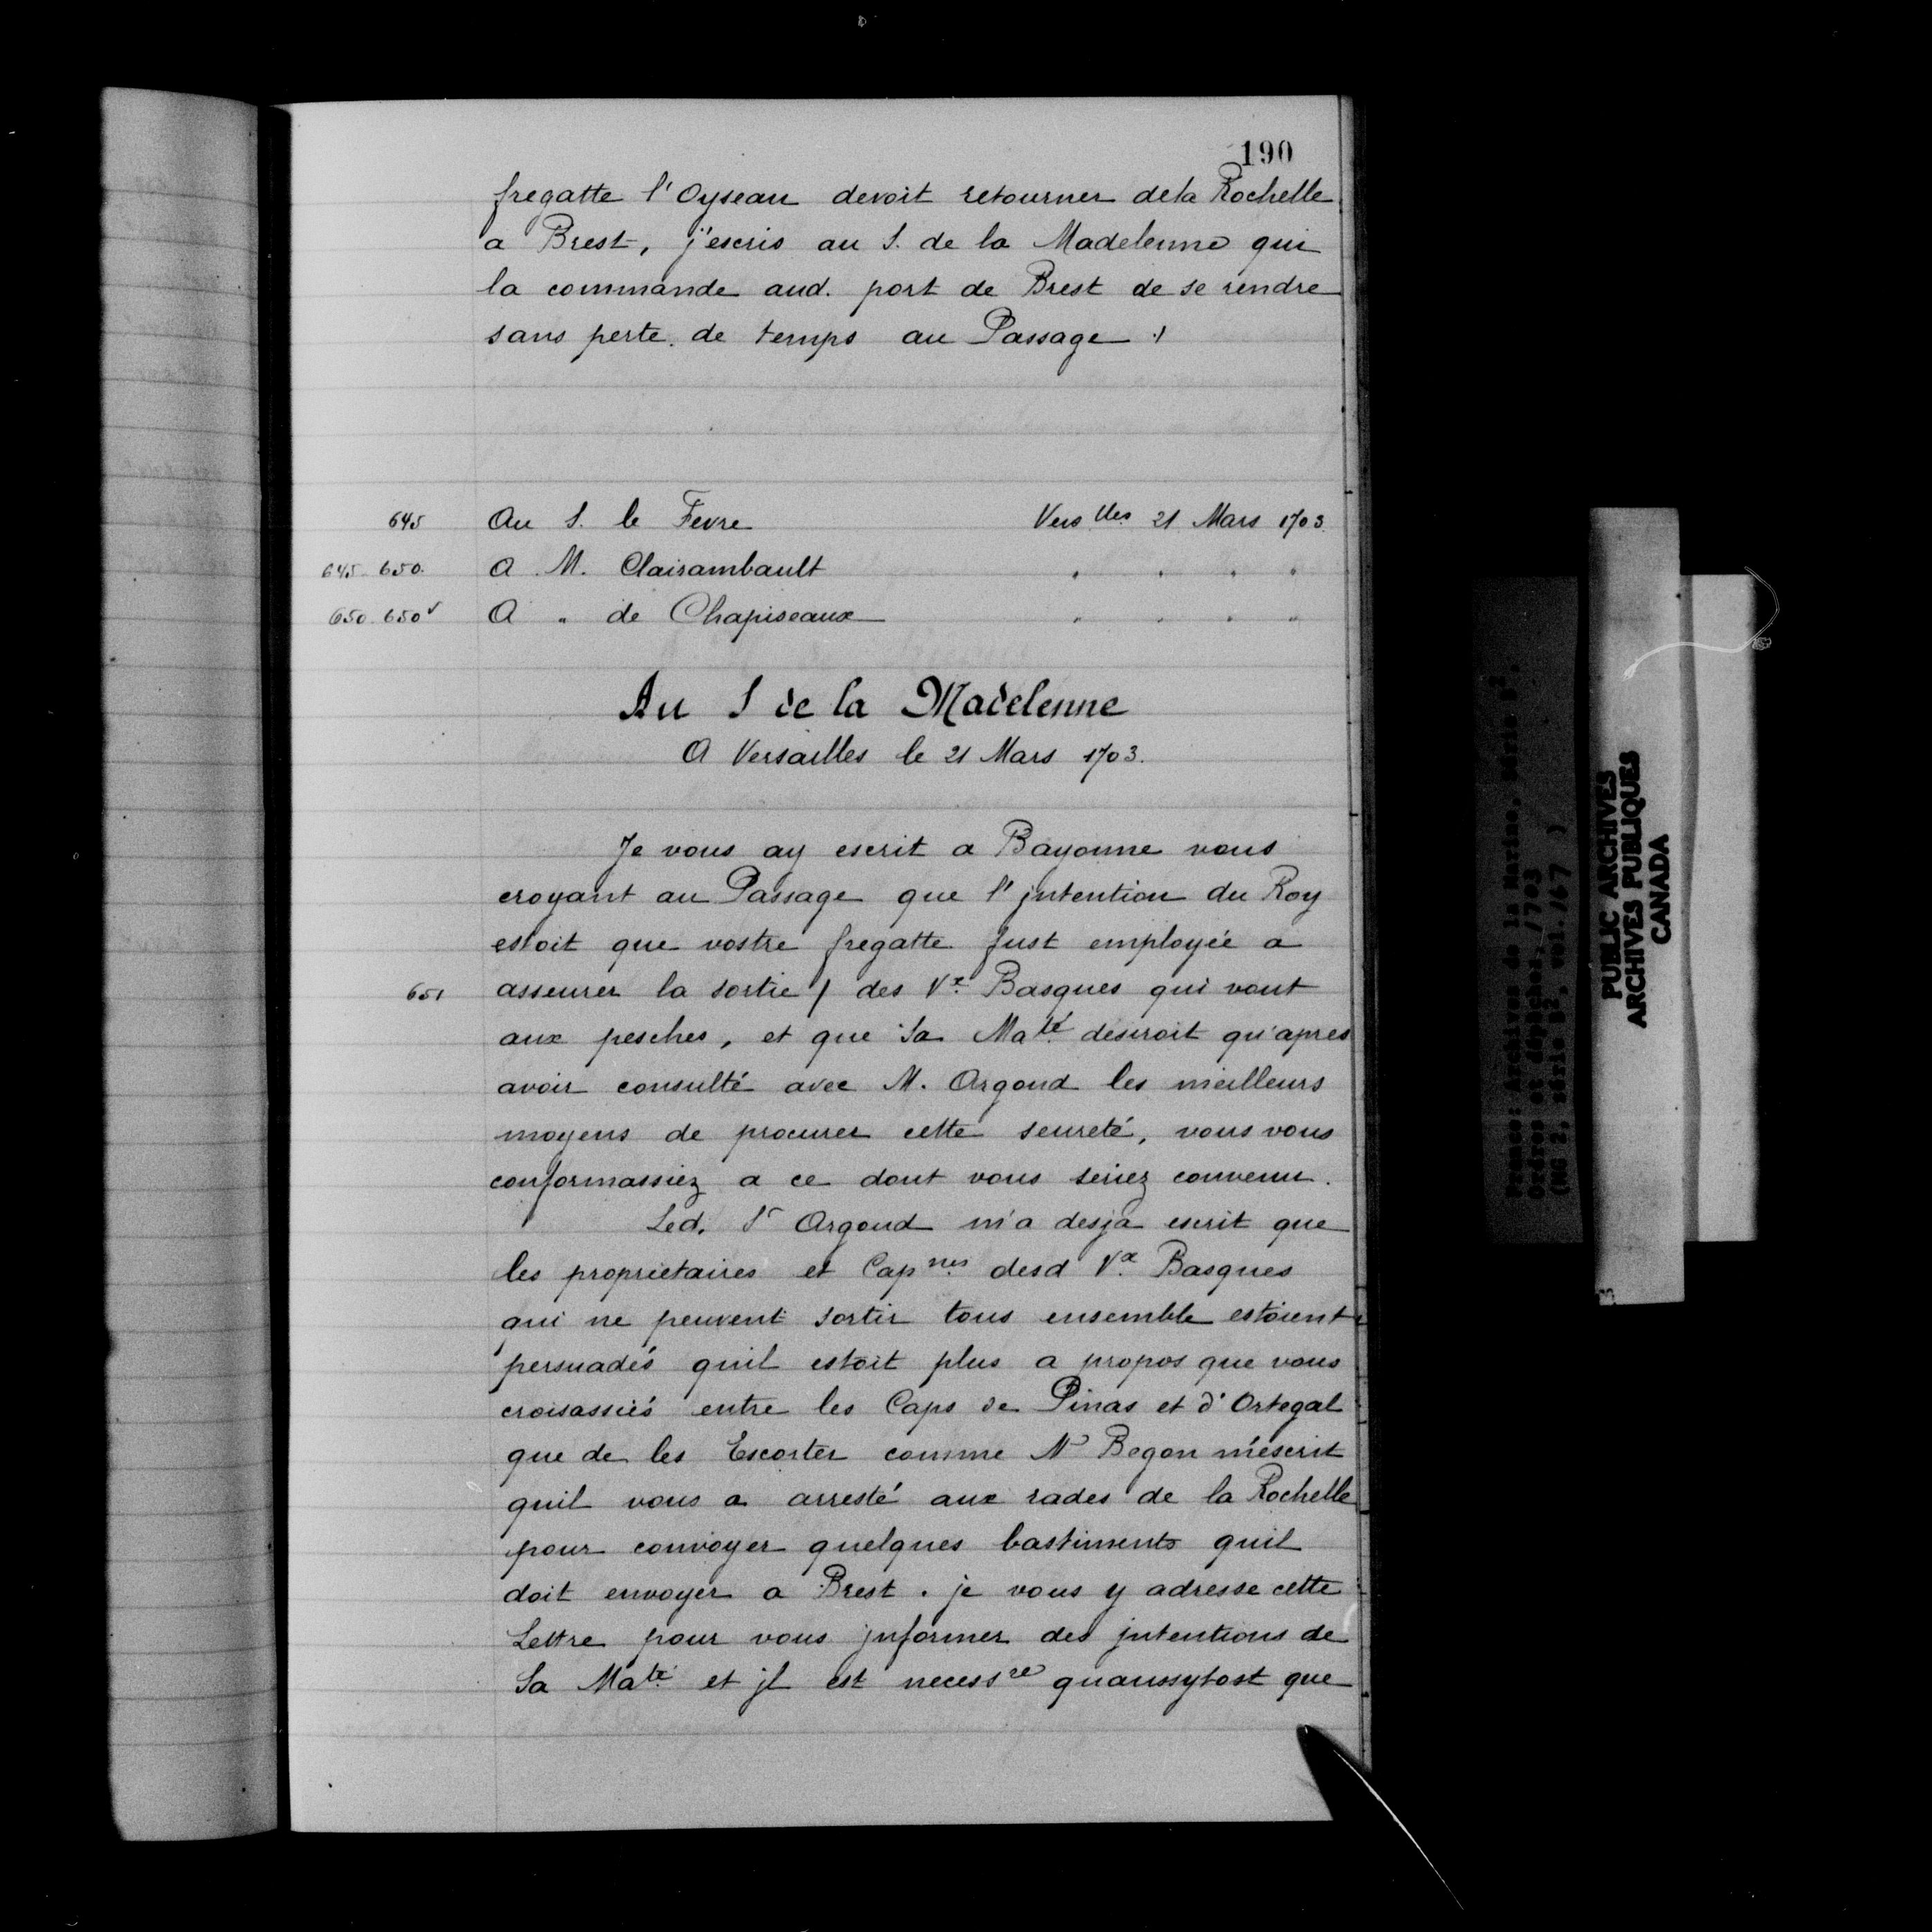 190
fregatte l'Oyseau devoit retourner de la Rochelle
a Brest, j'escris au S. de la Madelenne qui
la commande aud. port de Brest de se rendre
sans perte de temps au Passage ./
645 Au S. le Fevre Vers lles 21 Mars 1703.
645. 650. A M. Clairambault " " " "
650 650v A " de Chapiseaux " " " "
Au S de la Madelenne
A Versailles le 21 Mars 1703.
Je vous ay escrit a Bayonne vous
croyant au Passage que l'jntention du Roy
estoit que vostre fregatte fust employée a
651 asseurer la sortie / des Vx Basques qui vont
aux pesches, et que Sa Maté desiroit qu'apres
avoir consulté avec M. Argoud les meilleurs
moyens de procurer cette seureté, vous vous
conformassiez a ce dont vous seriez convenu.
Led. Sr Argoud m'a desja escrit que
les proprietaires et Capnes desd Vx Basques
qui ne peuvent sortir tous ensemble estoient
persuadés quil estoit plus a propos que vous
croisassiés entre les Caps de Pinas et d'Ortegal
que de les Escorter comme Mr Begon m'escrit
quil vous a arresté aux rades de la Rochelle
pour convoyer quelques bastiments quil
doit envoyer a Brest. je vous y adresse cette
Lettre pour vous jnformer des jntentions de
Sa Maté et jl est necessre quaussytost que
PUBLIC ARCHIVES
ARCHIVES PUBLIQUES
CANADA
France: Archives de la Marine. Série B2.
Ordres et dépêches, 1703
(MG 2, série B2, vol. 167 )